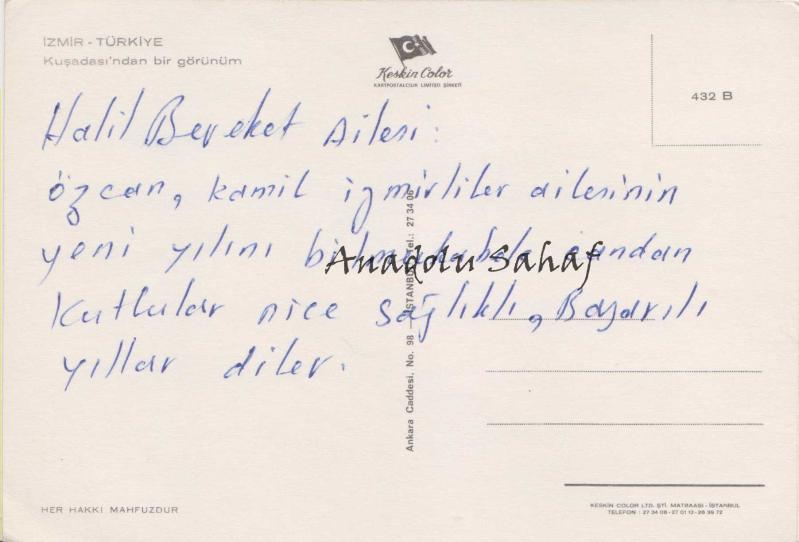 İZMİR - TÜRKİYE
Kuşadası'ndan bir görünüm
Keskin Color
KARTPOSTALCILIK LİMİTED ŞİRKETİ
432 B
Halil Bereket Ailesi:
özcan, kamil izmirliler ailesinin
yeni yılını bilmukabele candan
Kutlular nice sağlıklı, Başarılı
yıllar diler.
Anadolu Sahaf
Ankara Caddesi, No. 98 — İSTANBUL Tel.: 27 34 08
HER HAKKI MAHFUZDUR
KESKİN COLOR LTD. ŞTİ. MATBAASI - İSTANBUL
TELEFON : 27 34 08 - 27 01 12 - 28 39 72